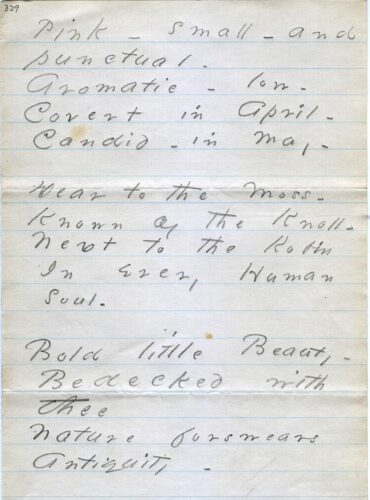 329
Pink - small - and
punctual -
Aromatic - low -
Covert in April -
Candid - in May -
Dear to the Moss -
Known of the Knoll -
Next to the Robin
In Every Human
Soul -
Bold little Beauty -
Bedecked with
thee
Nature forswears
Antiquity -